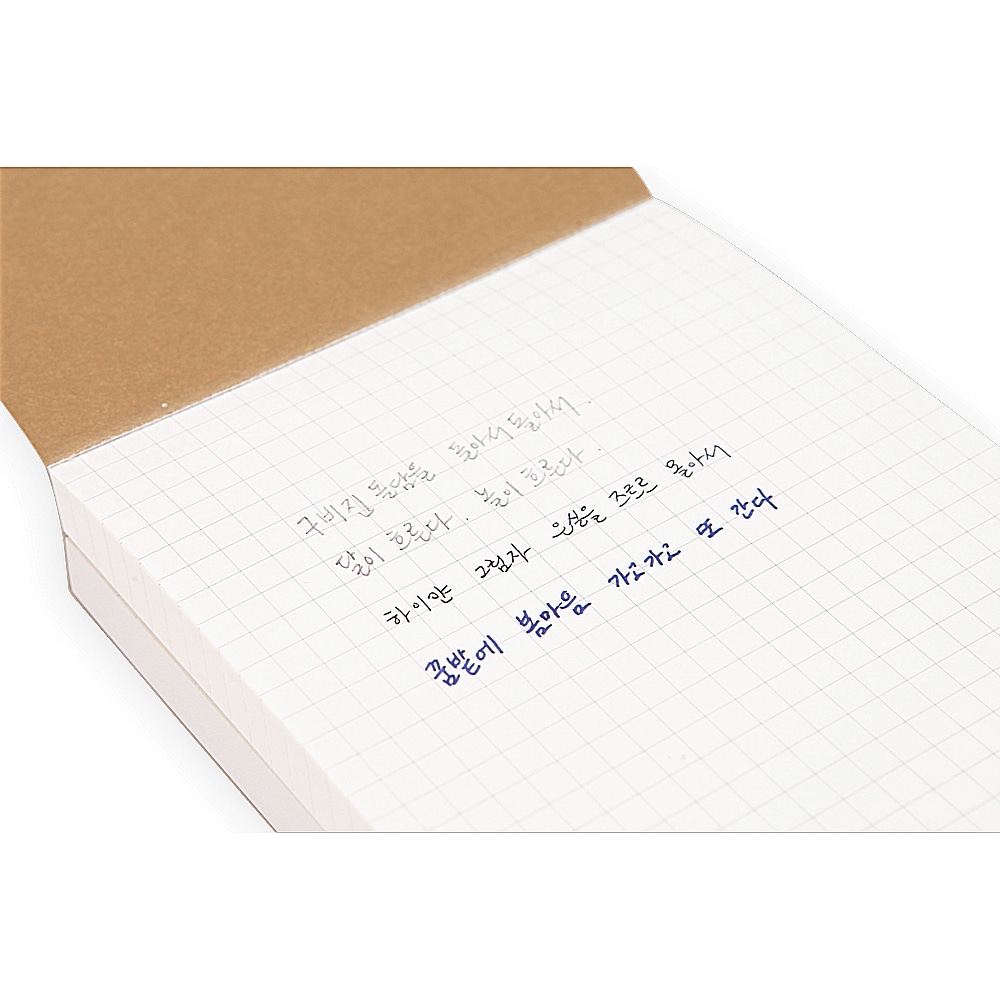 구비진 돌담을 돌아서 돌아서.
달이 흐른다. 놀이 흐른다.
하이얀 그림자 은실을 즈르르 몰아서
꿈밭에 봄마음 가고가고 또 간다